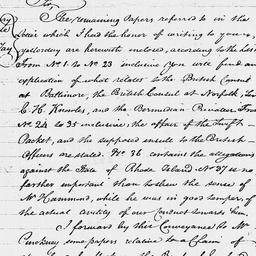 Sir,
The remaining Papers referred to in the
letter which I had the honor of writing to you
yesterday are herewith enclosed, according to the list
From No 1 to No 23 inclusive you will find an
explication of what relates to the British Consul
at Baltimore, the British Consul at Norfolk,
C. H. Knowles, and the Bermudian Privateer. From
No 24 to 35 inclusive, the affair of the Swift
Packet, and the supposed insult to the British
Officers are stated. No 36 contains the allegations
against the State of Rhode Island No 37 is no
farther important than to shew the sense of
Mr Hammond, while he was in good temper, of
the actual civility of our Conduct towards him.
I forward by this Conveyance to Mr
Pinckney some papers relative to a Claim of